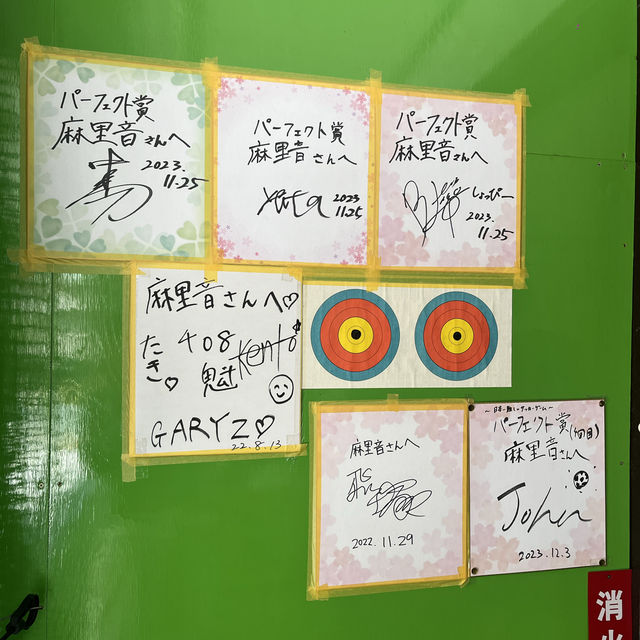 パーフェクト賞
麻里音さんへ
2023.
11.25
パーフェクト賞
麻里音さんへ
Yuta
2023
11.25
パーフェクト賞
麻里音さんへ
しょっぴー
2023.
11.25
麻里音さんへ♡
たき♡
408
魁斗
Kento
GARYZ♡
22.8.13
麻里音さんへ
2022.11.29
パーフェクト賞(4回目)
麻里音さんへ
John
2023.12.3
消
火